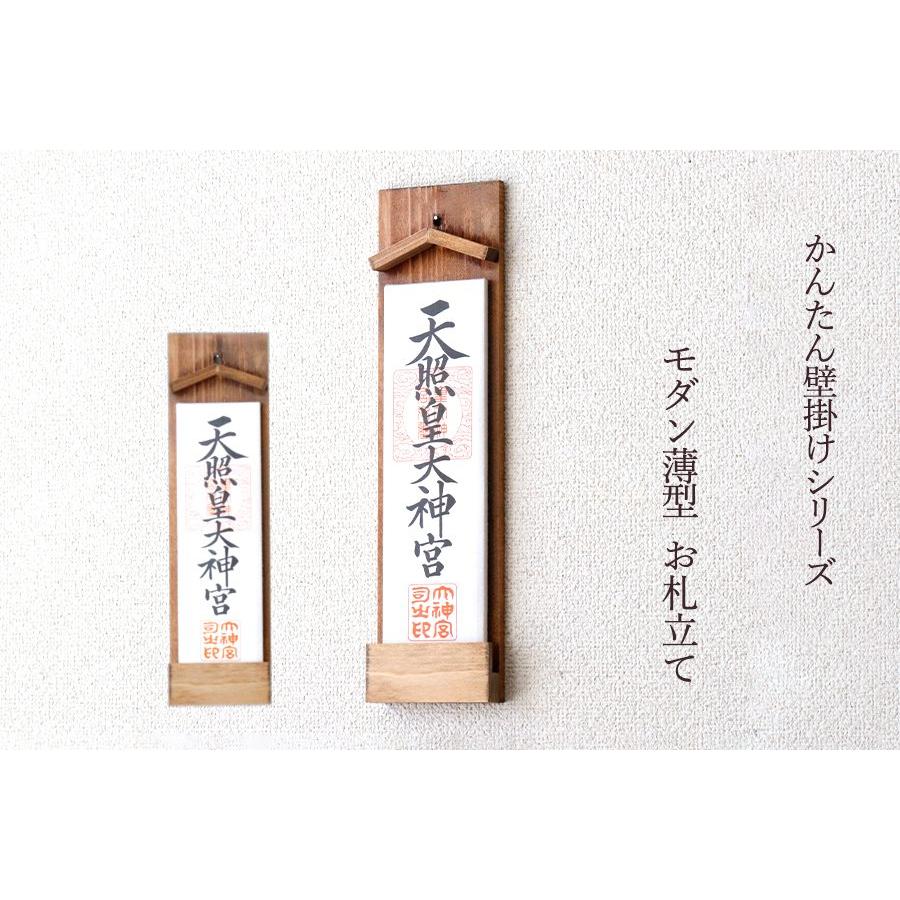 かんたん壁掛けシリーズ
モダン薄型 お札立て
天照皇大神宮
大神宮
司之印
天照皇大神宮
大神宮
司之印